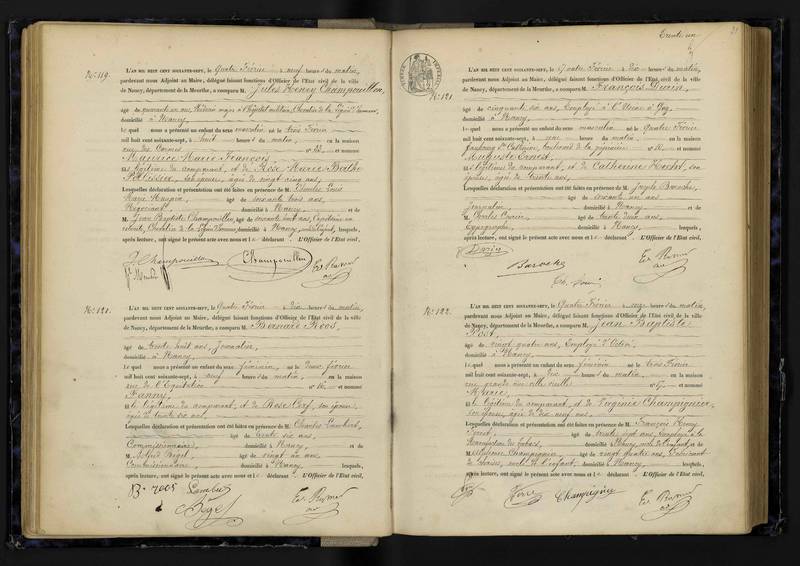 N°. 119.
L'AN MIL HUIT CENT SOIXANTE-SEPT, le Quatre Février à neuf heures du matin,
pardevant nous Adjoint au Maire, délégué faisant fonctions d'Officier de l'Etat civil de la ville
de Nancy, département de la Meurthe, a comparu M. Jules Henry Champouillon,
âgé de quarante un ans, Médecin major à l'hôpital militaire, Chevalier de la Légion d'honneur,
domicilié à Nancy
Lequel nous a présenté un enfant du sexe masculin né le trois Février
mil huit cent soixante-sept, à huit heures du matin, en la maison
rue des et nommé
Maurice Marie François,
fils légitime du comparant, et de Rose Marie Berthe
Pélissier, son épouse, âgée de vingt cinq ans,
Lesquelles déclaration et présentation ont été faites en présence de M. Charles Louis
âgé de soixante trois ans,
Négociant, domicilié à Nancy et de
M. Jean Baptiste Champouillon, âgé de soixante huit ans, Capitaine en
retraite, Chevalier de la Légion d'honneur, domicilié à Nancy, lesquels,
après lecture, ont signé le présent acte avec nous et le déclarant. L'Officier de l'Etat civil,
J. Champouillon
Champouillon
N°. 120.
L'AN MIL HUIT CENT SOIXANTE-SEPT, le Quatre Février à dix heures du matin,
pardevant nous Adjoint au Maire, délégué faisant fonctions d'Officier de l'Etat civil de la ville
de Nancy, département de la Meurthe, a comparu M. Bernard Roos,
âgé de trente huit ans, Journalier,
domicilié à Nancy,
Lequel nous a présenté un enfant du sexe féminin né le deux février
mil huit cent soixante-sept, à neuf heures du matin, en la maison
rue de l'Equitation n° 16, et nommé
Fanny,
fille légitime du comparant, et de Rose Cerf, son épouse,
âgée de trente six ans,
Lesquelles déclaration et présentation ont été faites en présence de M. Charles Lambert,
âgé de trente six ans,
Commissionnaire, domicilié à Nancy, et de
M. Alfred Bigel, âgé de vingt un ans,
Commissionnaire, domicilié à Nancy, lesquels,
après lecture, ont signé le présent acte avec nous et le déclarant. L'Officier de l'Etat civil,
B. roos
Lambert
Bigel
Trente un
31
N°. 121.
L'AN MIL HUIT CENT SOIXANTE-SEPT, le Quatre Février à dix heures du matin,
pardevant nous Adjoint au Maire, délégué faisant fonctions d'Officier de l'Etat civil de la ville
de Nancy, département de la Meurthe, a comparu M. François
âgé de cinquante six ans, Employé à l'Usine à Gaz,
domicilié à Nancy,
Lequel nous a présenté un enfant du sexe masculin né le Quatre Février
mil huit cent soixante-sept, à une heure du matin, en la maison
faubourg Ste Catherine, boulevard de la pépinière n° et nommé
Auguste Ernest,
fils légitime du comparant, et de Catherine Hecht, son
épouse, âgée de trente ans,
Lesquelles déclaration et présentation ont été faites en présence de M. Joseph
âgé de soixante un ans,
Journalier, domicilié à Nancy, et de
M. Charles âgé de trente deux ans,
Typographe, domicilié à Nancy, lesquels,
après lecture, ont signé le présent acte avec nous et le déclarant. L'Officier de l'Etat civil,
N°. 122.
L'AN MIL HUIT CENT SOIXANTE-SEPT, le Quatre Février à onze heures du matin,
pardevant nous Adjoint au Maire, délégué faisant fonctions d'Officier de l'Etat civil de la ville
de Nancy, département de la Meurthe, a comparu M. Jean Baptiste
âgé de vingt quatre ans, Employé d'Octroi,
domicilié à Nancy,
Lequel nous a présenté un enfant du sexe féminin né le trois Février
mil huit cent soixante-sept, à dix heures du matin, en la maison
rue grande rue ville vieille n° et nommé
Marie,
fille légitime du comparant, et de Virginie Champignier,
son épouse, âgée de dix neuf ans,
Lesquelles déclaration et présentation ont été faites en présence de M. François Henry
âgé de trente sept ans, Employé à la
Manufacture des tabacs, domicilié à Nancy, oncle de l'enfant, et de
M. Champignier, âgé de vingt quatre ans, Fabricant
de chaises, oncle de l'enfant, domicilié à Nancy, lesquels,
après lecture, ont signé le présent acte avec nous et le déclarant. L'Officier de l'Etat civil,
Champignier